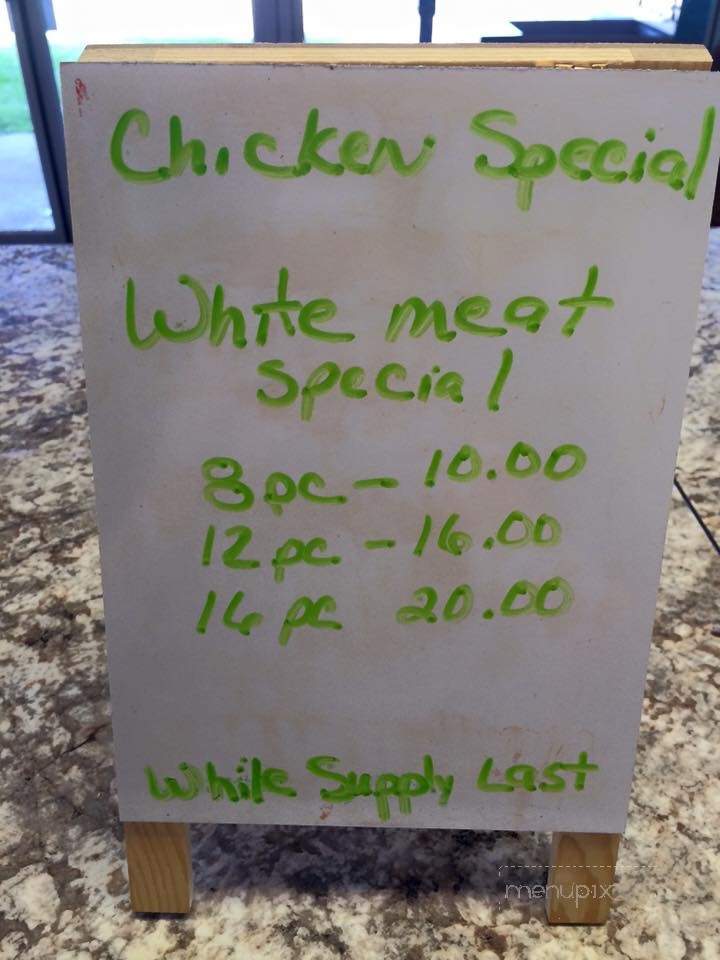 Chicken Special
White meat
special
8pc - 10.00
12 pc - 16.00
16 pc 20.00
While Supply Last
menupix